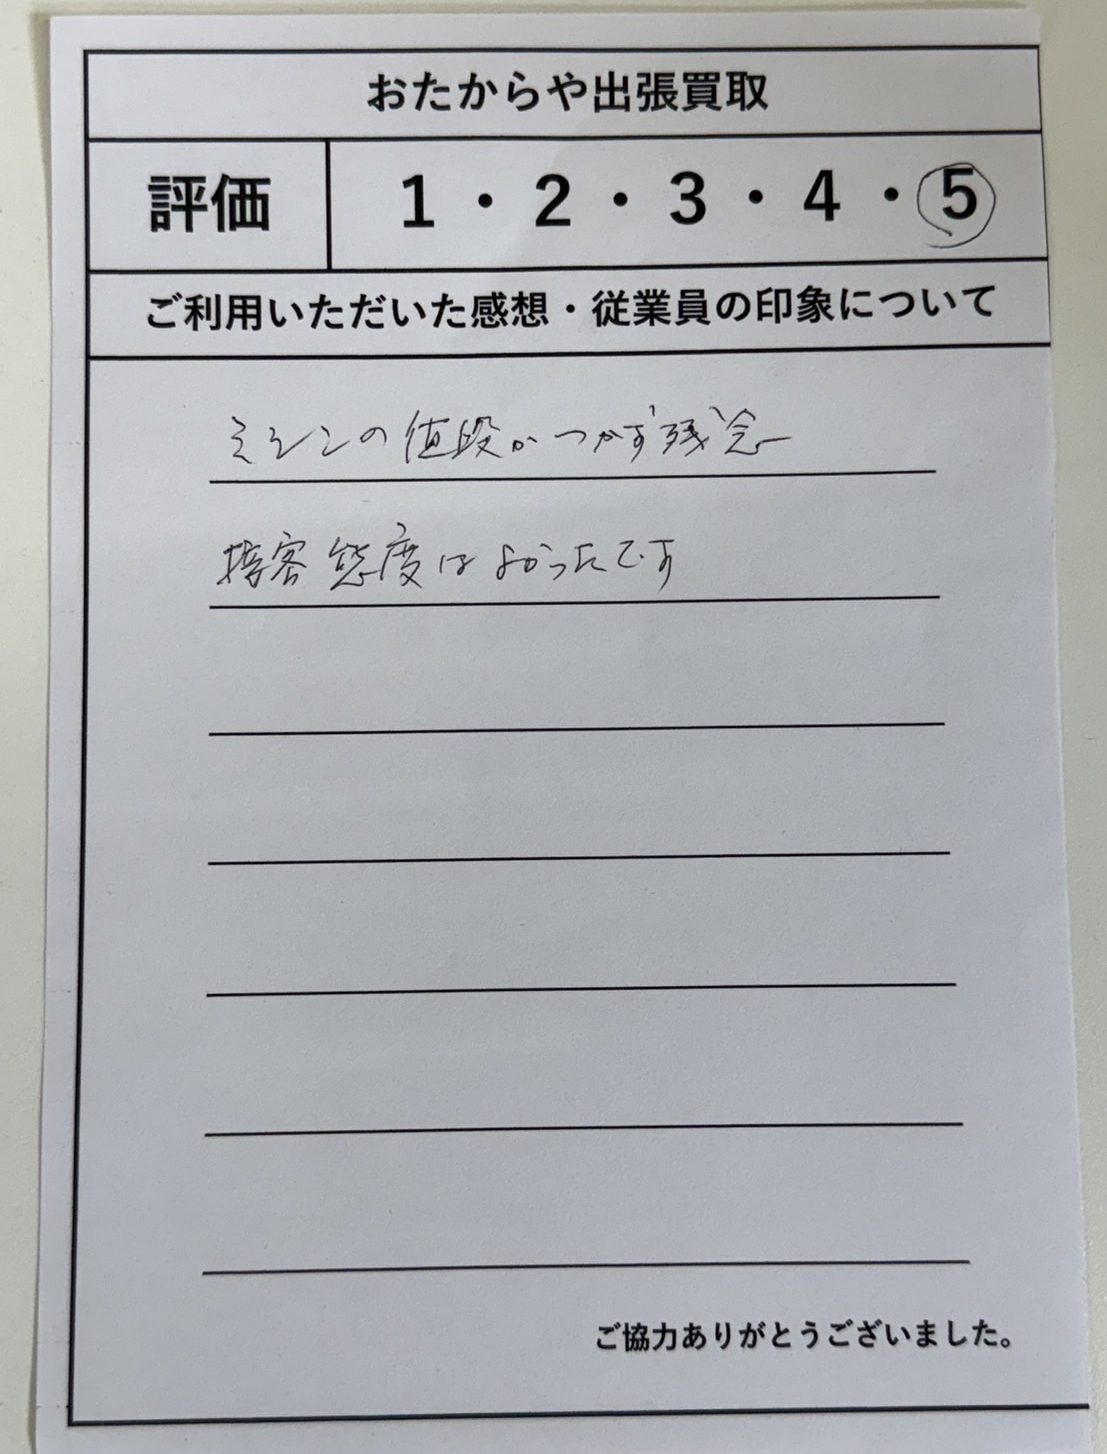 おたからや出張買取
評価 1・2・3・4・5
ご利用いただいた感想・従業員の印象について
ミシンの値段がつかず残念
接客態度はよかったです
ご協力ありがとうございました。